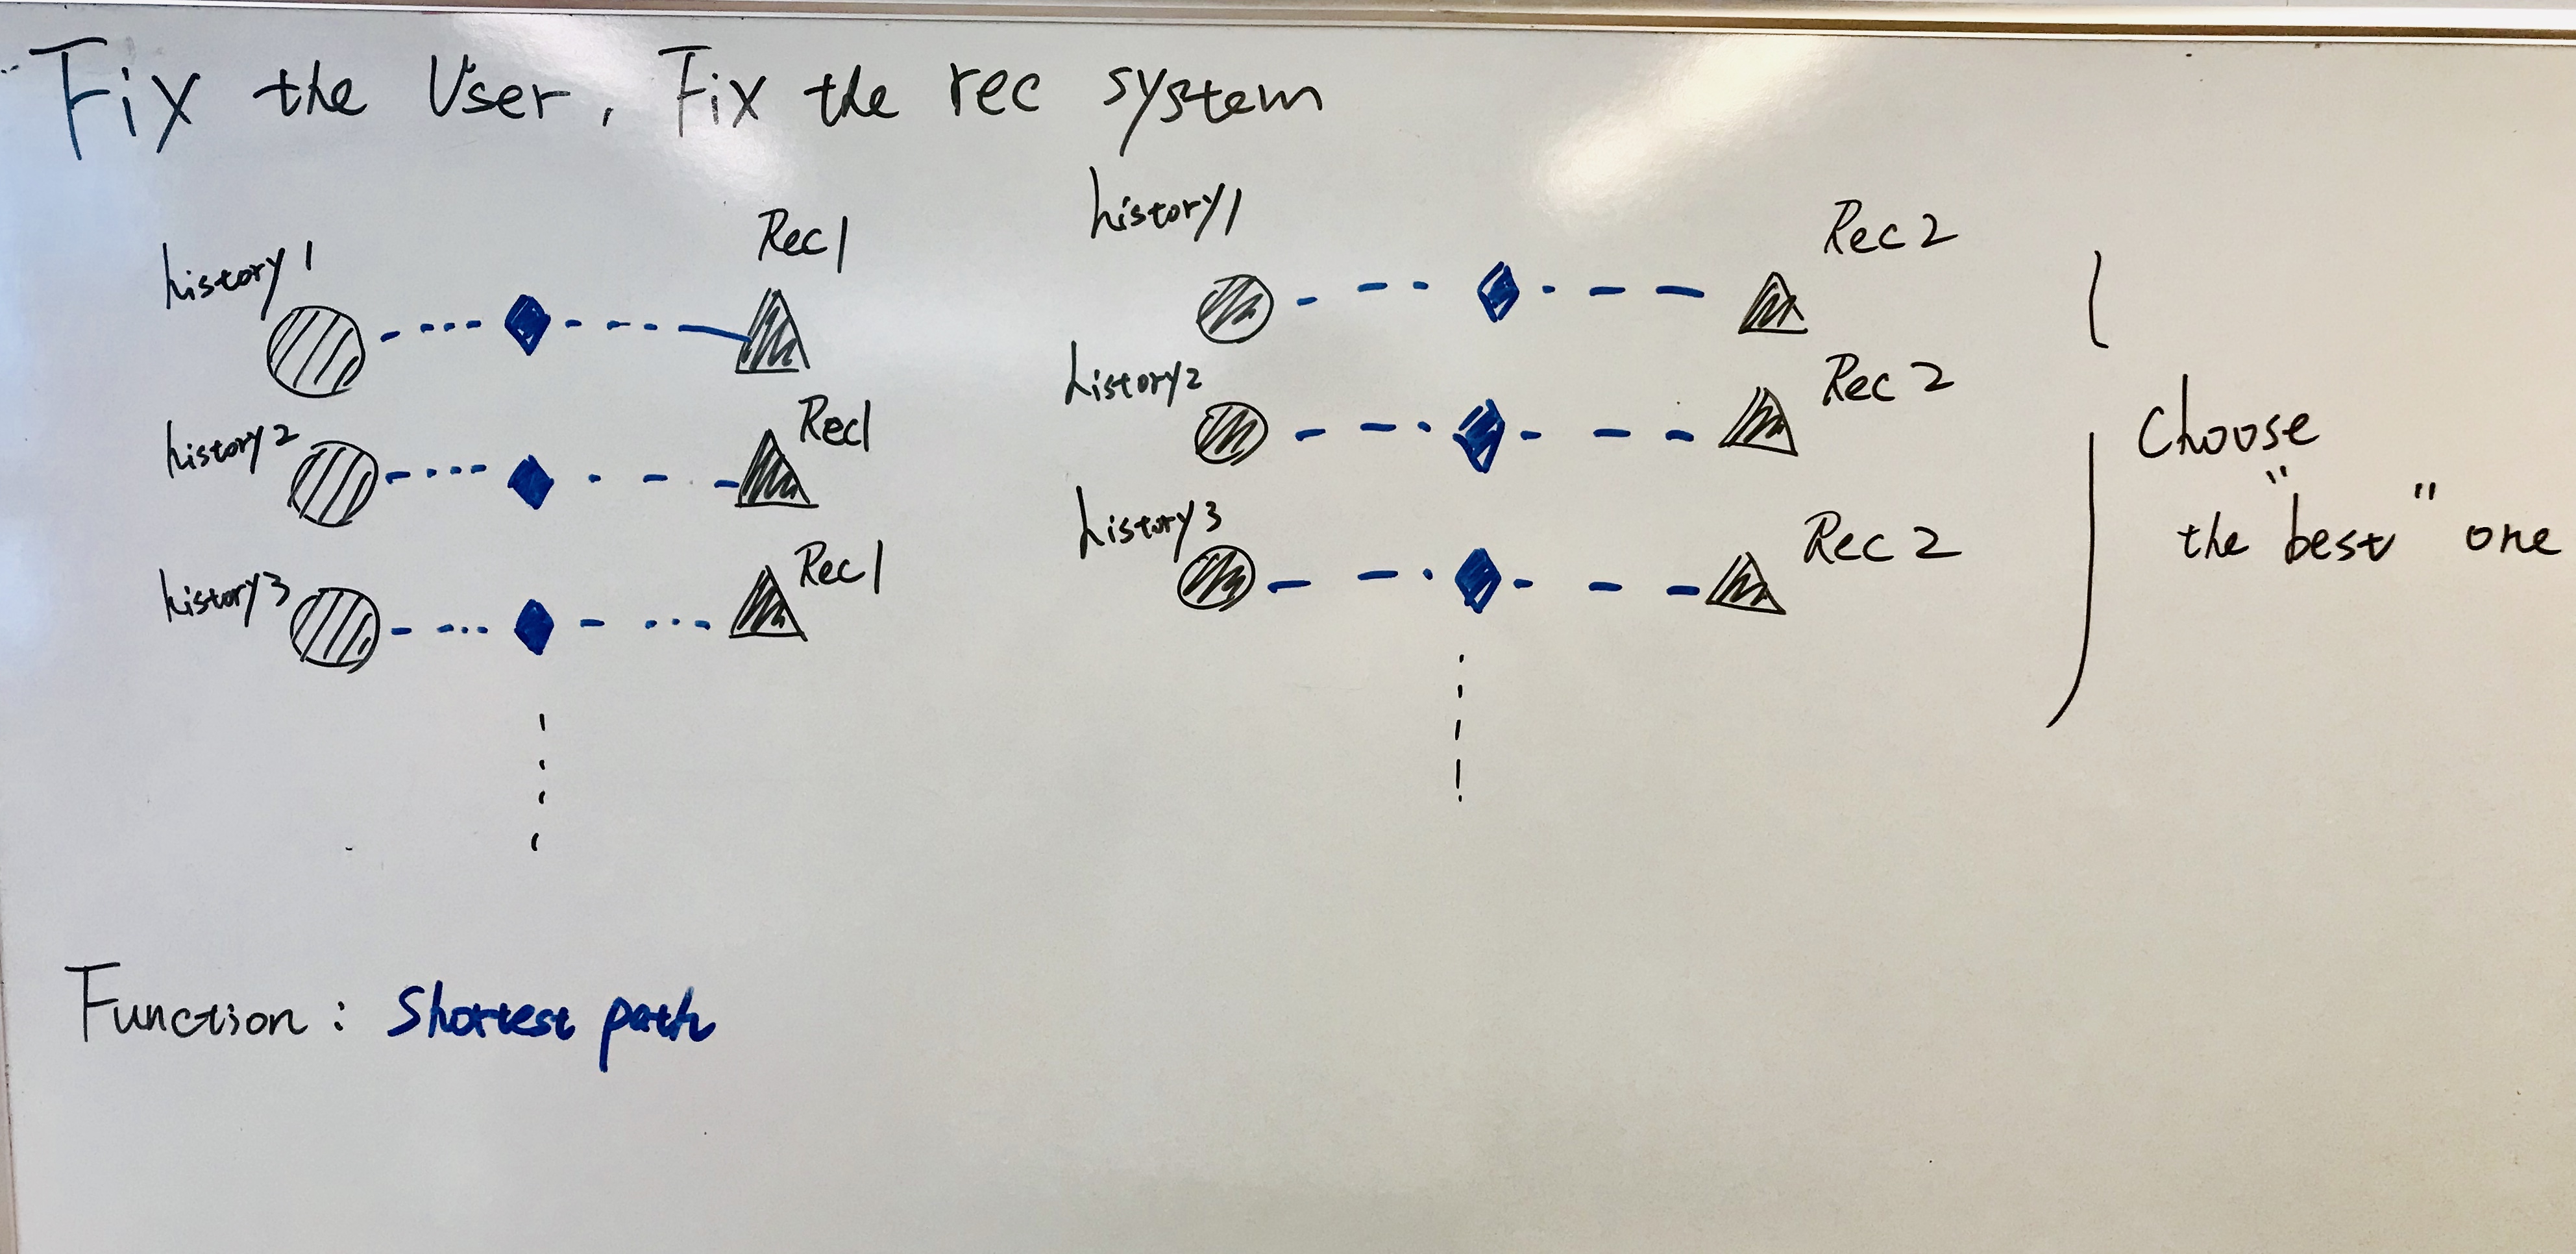 Fix the User, Fix the rec system
history1 Rec1
history2 Rec1
history3 Rec1
history1 Rec2
history2 Rec2
history3 Rec2
Choose
the "best" one
Function: Shortest path